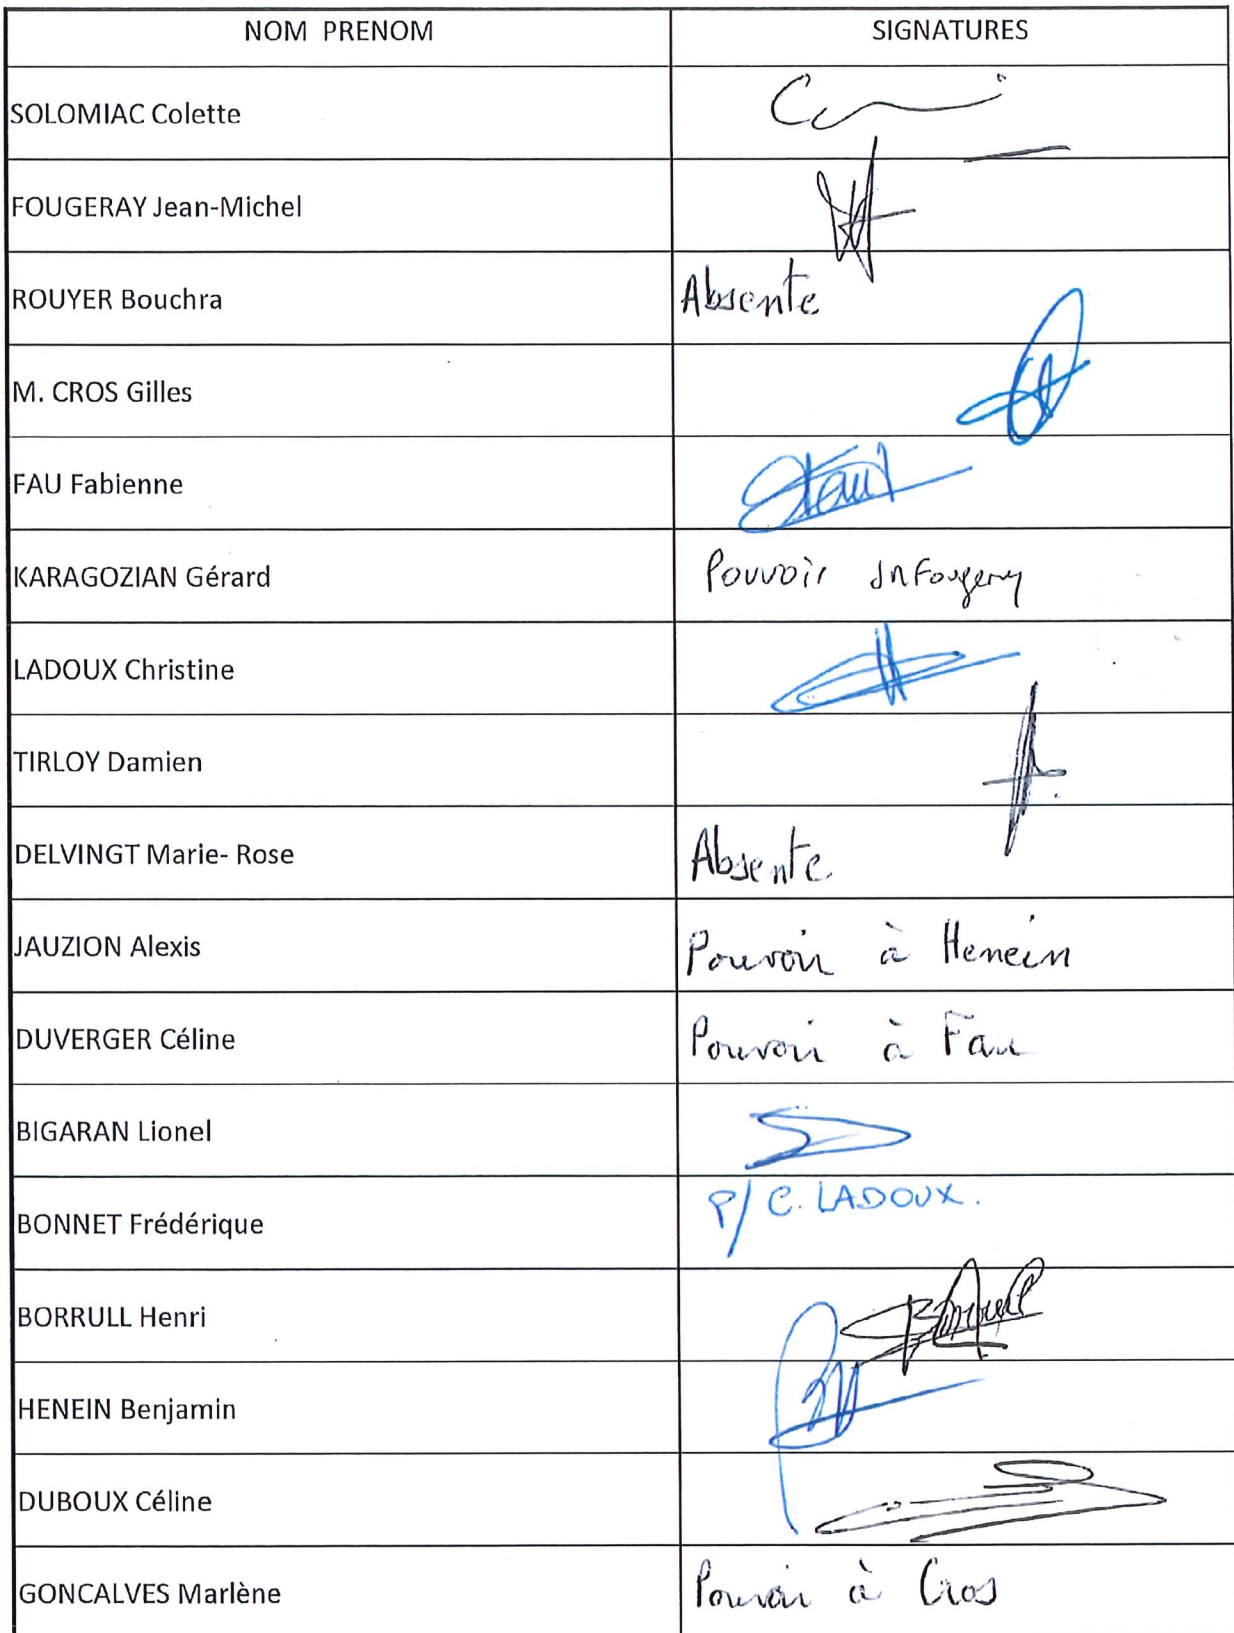 NOM PRENOM SIGNATURES
SOLOMIAC Colette
FOUGERAY Jean-Michel
ROUYER Bouchra Absente
M. CROS Gilles
FAU Fabienne
KARAGOZIAN Gérard Pouvoir JM Fougeray
LADOUX Christine
TIRLOY Damien
DELVINGT Marie- Rose Absente
JAUZION Alexis Pouvoir à Henein
DUVERGER Céline Pouvoir à Fau
BIGARAN Lionel
BONNET Frédérique P/ C. LADOUX.
BORRULL Henri
HENEIN Benjamin
DUBOUX Céline
GONCALVES Marlène Pouvoir à Cros